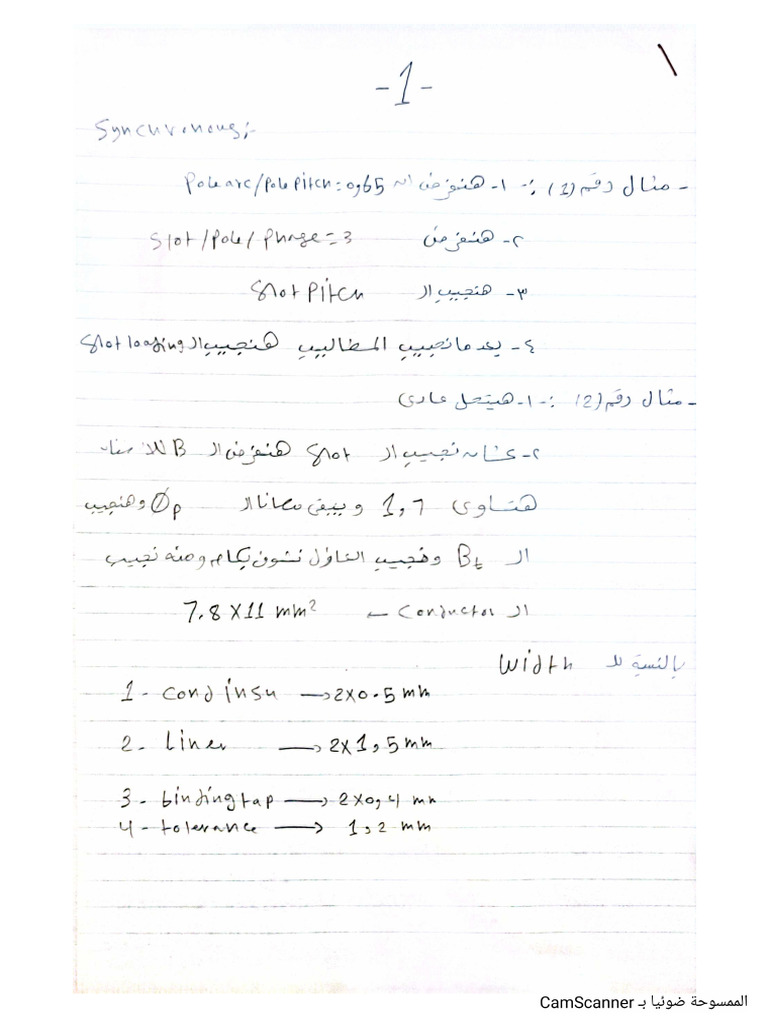 \
-1-
Synchronous:-
- مثال رقم (1) :- ١- هنفرض ال Pole arc/Pole Pitch = 0,65
٢- هنفرض Slot/Pole/Phase = 3
٣- هنجيب ال Slot Pitch
٤- بعد ما نجيب المطاليب هنجيب ال Slot loading
- مثال رقم (2) :- ١- هيتحل عادى
٢- عشان نجيب ال Slot هنفرض ال B للاسنان
هتساوى 1,7 ويبقى معانا ال Øp وهنجيب
ال Bt وهنجيب التاول نشوف بكام ومنه نجيب
ال Conductor ← 7.8 X 11 mm²
بالنسبة لل Width
1 - Cond insu → 2X0.5 mm
2 - Liner → 2X1,5 mm
3 - binding tap → 2X0,4 mm
4 - tolerance → 1,2 mm
الممسوحة ضوئيا بـ CamScanner